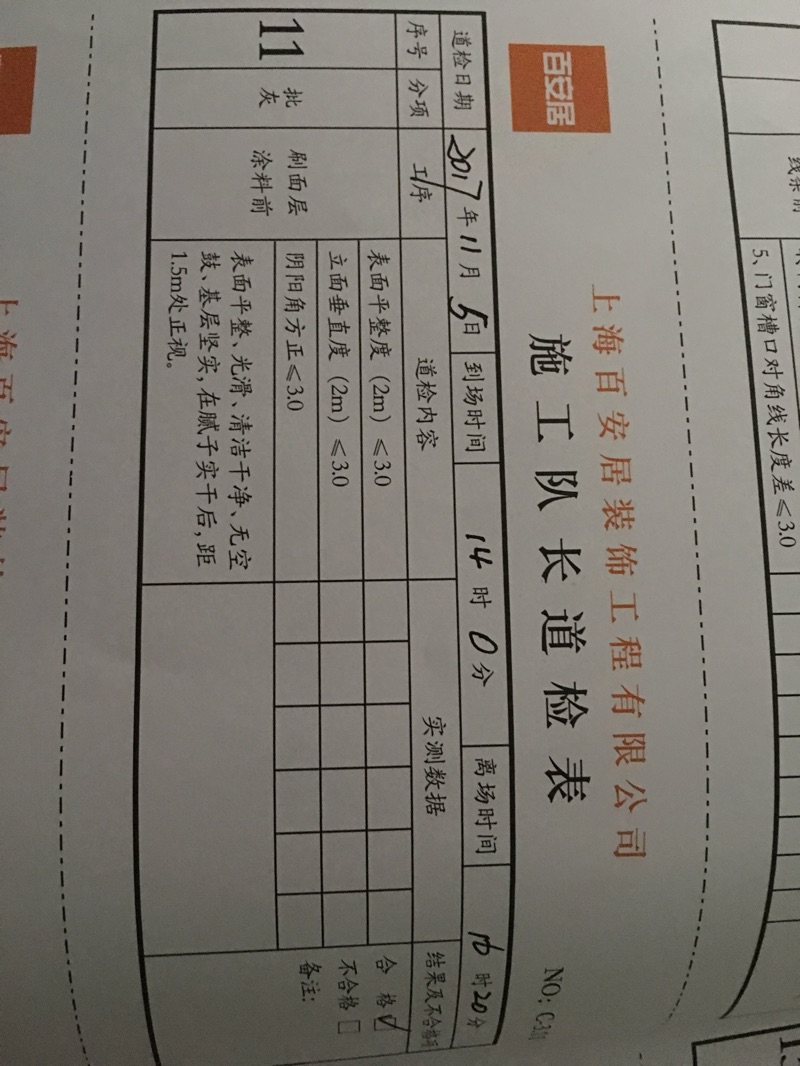 线条前
5、门窗槽口对角线长度差≤3.0
百安居
上海百安居装饰工程有限公司
施工队长道检表
NO:
道检日期 2017年11月5日 到场时间 14时0分 离场时间 16时20分
序号 分项 工序 道检内容 实测数据
11 批灰 刷面层涂料前
表面平整度（2m）≤3.0
立面垂直度（2m）≤3.0
阴阳角方正≤3.0
表面平整、光滑、清洁干净、无空
鼓、基层坚实，在腻子实干后，距
1.5m处正视。
合 格
不合格
备注：